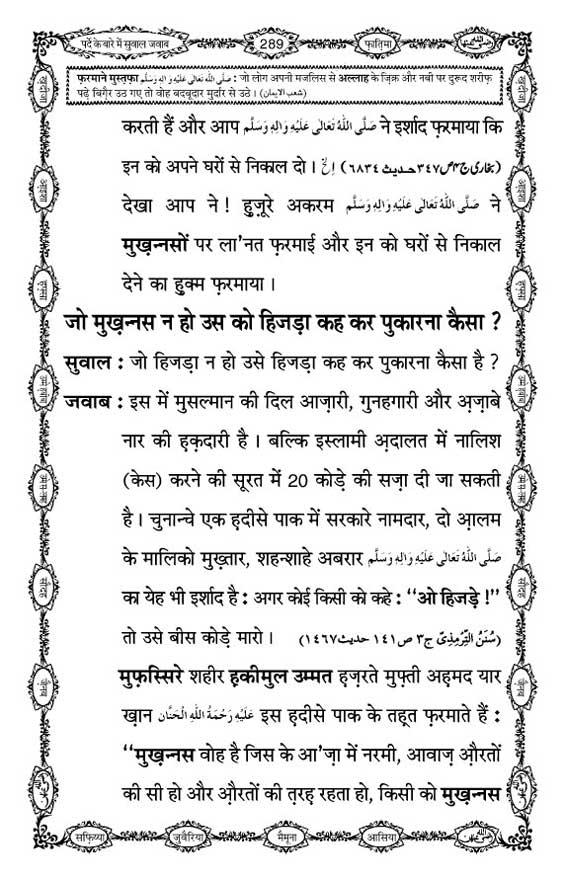 पर्दे के बारे में सुवाल जवाब
289
फ़ातिमा
फ़रमाने मुस्तफ़ा صَلَّى اللهُ تَعَالٰى عَلَيْهِ وَاٰلِهٖ وَسَلَّم : जो लोग अपनी मजलिस से अल्लाह के ज़िक्र और नबी पर दुरूद शरीफ़
पढ़े बिग़ैर उठ गए तो वोह बदबूदार मुर्दार से उठे । (شعب الایمان)
करती हैं और आप صَلَّى اللهُ تَعَالٰى عَلَيْهِ وَاٰلِهٖ وَسَلَّم ने इर्शाद फ़रमाया कि
इन को अपने घरों से निकाल दो । اِلَخْ (بخاری ج۴ص۳۴۷حدیث ۶۸۳۴)
देखा आप ने ! हुज़ूरे अकरम صَلَّى اللهُ تَعَالٰى عَلَيْهِ وَاٰلِهٖ وَسَلَّم ने
मुख़न्नसों पर ला'नत फ़रमाई और इन को घरों से निकाल
देने का हुक्म फ़रमाया ।
जो मुख़न्नस न हो उस को हिजड़ा कह कर पुकारना कैसा ?
सुवाल : जो हिजड़ा न हो उसे हिजड़ा कह कर पुकारना कैसा है ?
जवाब : इस में मुसल्मान की दिल आज़ारी, गुनहगारी और अ़ज़ाबे
नार की ह़क़दारी है । बल्कि इस्लामी अ़दालत में नालिश
(केस) करने की सूरत में 20 कोड़े की सज़ा दी जा सकती
है । चुनान्चे एक ह़दीसे पाक में सरकारे नामदार, दो आ़लम
के मालिको मुख़्तार, शहन्शाहे अबरार صَلَّى اللهُ تَعَالٰى عَلَيْهِ وَاٰلِهٖ وَسَلَّم
का येह भी इर्शाद है : अगर कोई किसी को कहे : “ओ हिजड़े !”
तो उसे बीस कोड़े मारो । (سُنَنُ التِّرْمِذِیّ ج۳ ص۱۴۱ حدیث۱۴۶۷)
मुफ़स्सिरे शहीर ह़कीमुल उम्मत ह़ज़रते मुफ़्ती अह़मद यार
ख़ान عَلَيْهِ رَحْمَةُ اللهِ الْحَنَّان इस ह़दीसे पाक के तह़त फ़रमाते हैं :
“मुख़न्नस वोह है जिस के आ'ज़ा में नरमी, आवाज़ औ़रतों
की सी हो और औ़रतों की त़रह़ रहता हो, किसी को मुख़न्नस
सफ़िय्या
जुवैरिया
मैमूना
आसिया